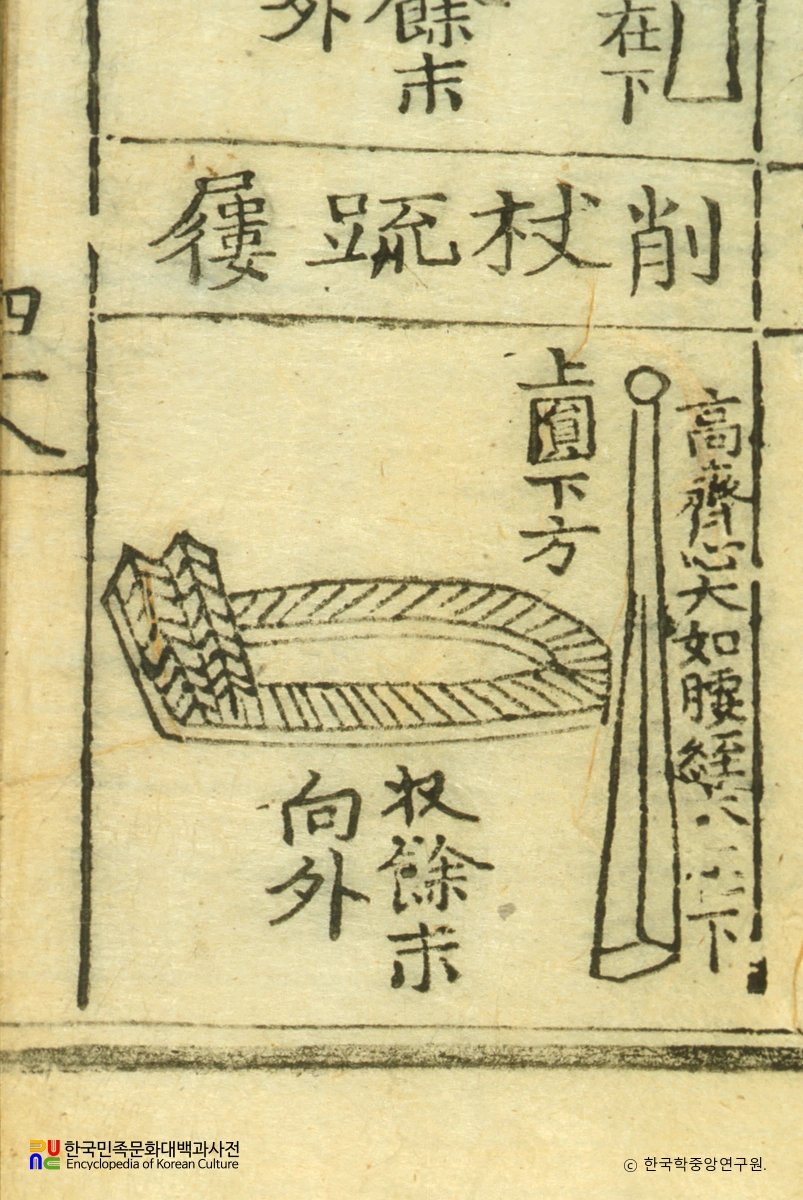 在下
餘末
外
削杖疏屨
高齊心大如腰絰
下
上圓下方
収餘末
向外
한국민족문화대백과사전
Encyclopedia of Korean Culture
© 한국학중앙연구원.